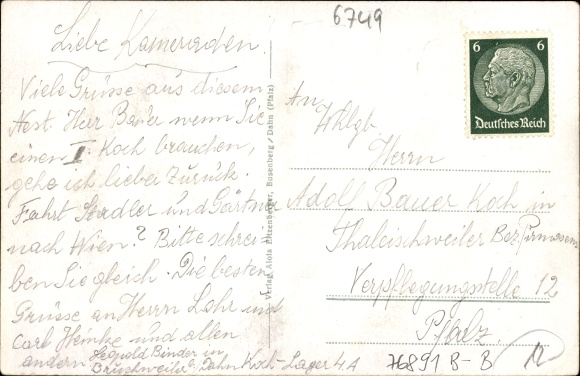 6749
Liebe Kameraden.
Viele Grüsse aus diesem
Nest. Herr Bauer wenn Sie
einen II. Koch brauchen,
gehe ich lieber zurück.
Fährt Stadler und Gärtner
nach Wien? Bitte schrei-
ben Sie gleich. Die besten
Grüsse an Herrn Lohr und
Carl Heinke und allen
andern Leopold Binder in
Bruchweiler b. Dahn Koch-Lager 4A
Verlag Alois Eitzenberger, Busenberg/Dahn (Pfalz)
6 6
Deutsches Reich
An
Wohlgb.
Herrn
Adolf Bauer Koch in
Thaleischweiler Bez. Pirmasens
Verpflegungsstelle 12
Pfalz.
76891 B-B